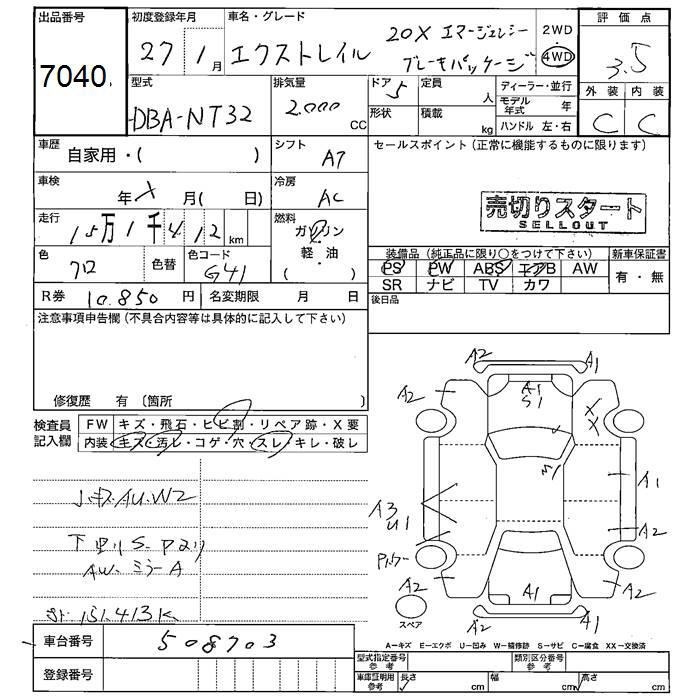 出品番号
7040
初度登録年月
27 1月
車名・グレード
エクストレイル
20X エマージェンシー
ブレーキパッケージ
2WD
・
4WD
評価点
3.5
外装 内装
C C
型式
DBA-NT32
排気量
2.000
CC
ドア
5
形状
定員
人
積載
kg
ディーラー・並行
モデル年式 年
ハンドル 左・右
車歴
自家用・( )
シフト
A7
セールスポイント(正常に機能するものに限ります)
車検
年 X 月( 日)
冷房
AC
売切りスタート
SELLOUT
走行
15万1千412
km
燃料
ガソリン
軽・油
( )
色
クロ
色替
色コード
G41
装備品(純正品に限り○をつけて下さい)
PS PW ABS エアB AW
SR ナビ TV カワ
新車保証書
有・無
R券
10.850 円
名変期限 月 日
後日品
注意事項申告欄(不具合内容等は具体的に記入して下さい)
修復歴 有 〔箇所 〕
検査員
記入欄
FW キズ・飛石・ヒビ割・リペア跡・X要
内装 キズ・汚レ・コゲ・穴・スレ・キレ・破レ
小キズ.AU.W2
下廻りS-Pより
AW.ミラーA
151.413K
A2
A1
A2
A1
S1
X
X
A3
U1
A1
A2
A2
A1
A2
A2
A1
スペア
A=キズ E=エクボ U=凹み W=補修跡 S=サビ C=腐食 XX=交換済
車台番号
508703
登録番号
型式指定番号
参考
類別区分番号
参考
車庫証明用
参考
長さ
cm
幅
cm
高さ
cm